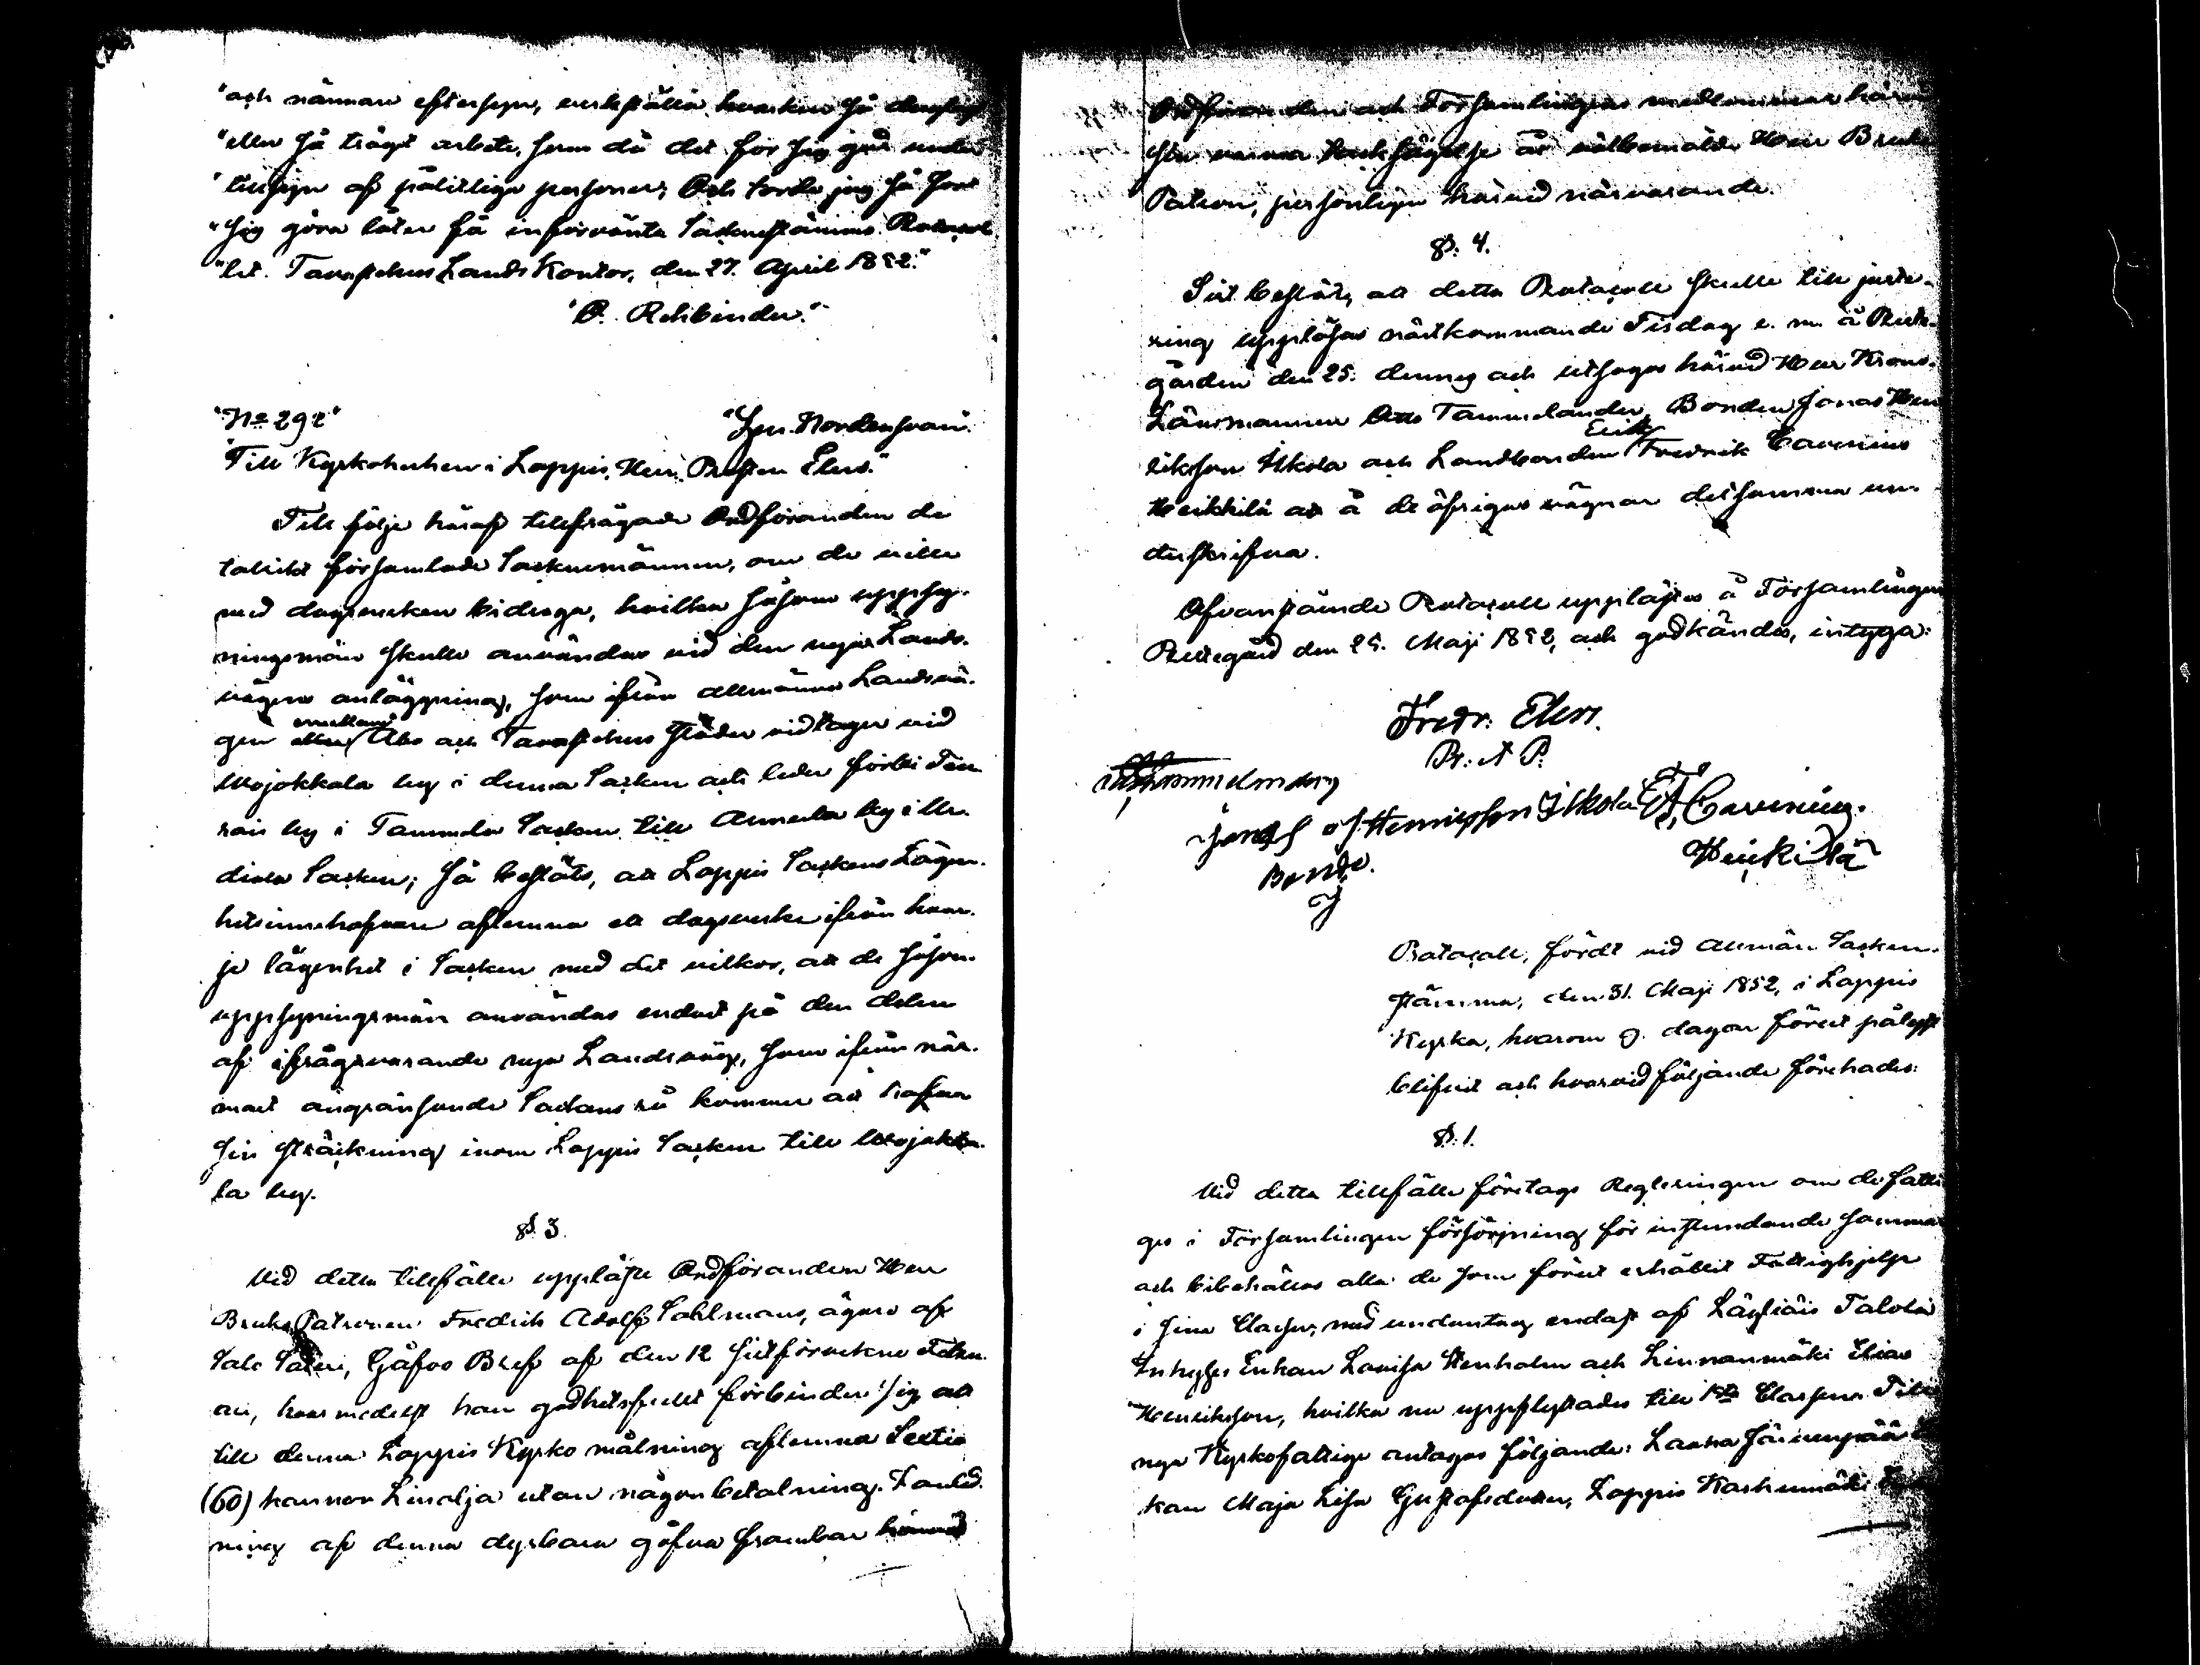 "och nämnare eftersyn, verkställa hvarken så
"eller så trägt arbete, som då det för sig går under
"tillsyn af pålitlige personer; Och torde jag så fort
"sig göra låter få emförvänta Sockenstämmo Protocol-
"let. Tavastehus Lands Kontor, den 27. April 1852."
"O. Rehbinder."
"No 292"
"Spn. Nordensvan."
"Till Kyrkoherden i Loppis, Herr Prosten Elers."
Till följe häraf tillfrågade Ordföranden de
talrikt församlade Sockenmännen, om de ville
med dagsverken bidraga, hvilka såsom uppsy-
ningsmän skulle användas vid den nya Lands-
vägens anläggning, som ifrån allmänna Landsvä-
gen emellan Åbo och Tavastehus städer vidtager vid
Wojakkala by i denna Socken och leder förbi For-
rais by i Tammela Socken till Annerla by i Ur-
diala Socken; så beslöts, att Loppis Sockens Lägen-
hetsinnehafvare aflemna ett dagsverke ifrån hvar-
je lägenhet i Socken med det vilkor, att de såsom
uppsyningsmän användas endast på den delen
af ifrågavarande nya Landsväg, som ifrån när-
mast angränsande Sockens rå kommer att hafva
sin sträckning inom Loppis Socken till Wojakka-
la by.
§. 3.
Vid detta tillfälle uppläste Ordföranden Herr
Bruks Patronen Fredrik Adolf Sahlmans, ägare af
Sale Säteri, Gåfvo Bref af den 12 sistförvekne
ari, hvarmedelst han godhetsfullt förbinder sig att
till denna Loppis Kyrko målning aflemna Sextio
(60) kannor Linolja utan någon betalning. I anled-
ning af denna dyrbara gåfva frambar
Ordföranden och Församlingens medlemmar
sin varma tacksägelse åt välbemälde Herr Bruks
Patron, personligen härvid närvarande.
§. 4.
Sist beslöts, att detta Protocoll skulle till juste-
ring uppläsas nästkommande Tisdag e. m. å Preste-
gården den 25. dennes och utsågos härvid Herr Krono-
Länsmannen Otto Tammelander, Bonden Jonas Hen
rikson Ilkola och Landbonden Erik Fredrik Cavenius
Heikkilä att å de öfrigas vägnar detsamma un-
derskrifva.
Ofvanstående Protocoll upplästes å Församlingens
Prestegård den 25. Maji 1852, och godkändes, intyga:
Fredr. Elers.
Pr. & P.
Tammelander
Jonas Henriksson Ilkola E. F. Cavenius.
Bonde.
Heikkilä
Protocoll, fördt vid allmän Socken-
stämma, den 31. Maji 1852, i Loppis
Kyrka, hvarom 8. dagar förut pålyst
blifvit och hvarvid följande förehades:
§. 1.
Vid detta tillfälle företogs Regleringen om de fatti-
gas i Församlingen försörjning för instundande sommar
och bibehållas alla de som förut erhållit Fattighjelp
i sina Classer, med undantag endast af Läyliäis Talola
Inhyses Enkan Lovisa Stenholm och Linnanmäki Elias
Henrikson, hvilka nu uppflyttades till 1sta Classen. Till
nya Kyrkofattige antagas följande: Launa Järvenpää
kan Maja Lisa Gustafsdotter, Loppis Kaskenmäki